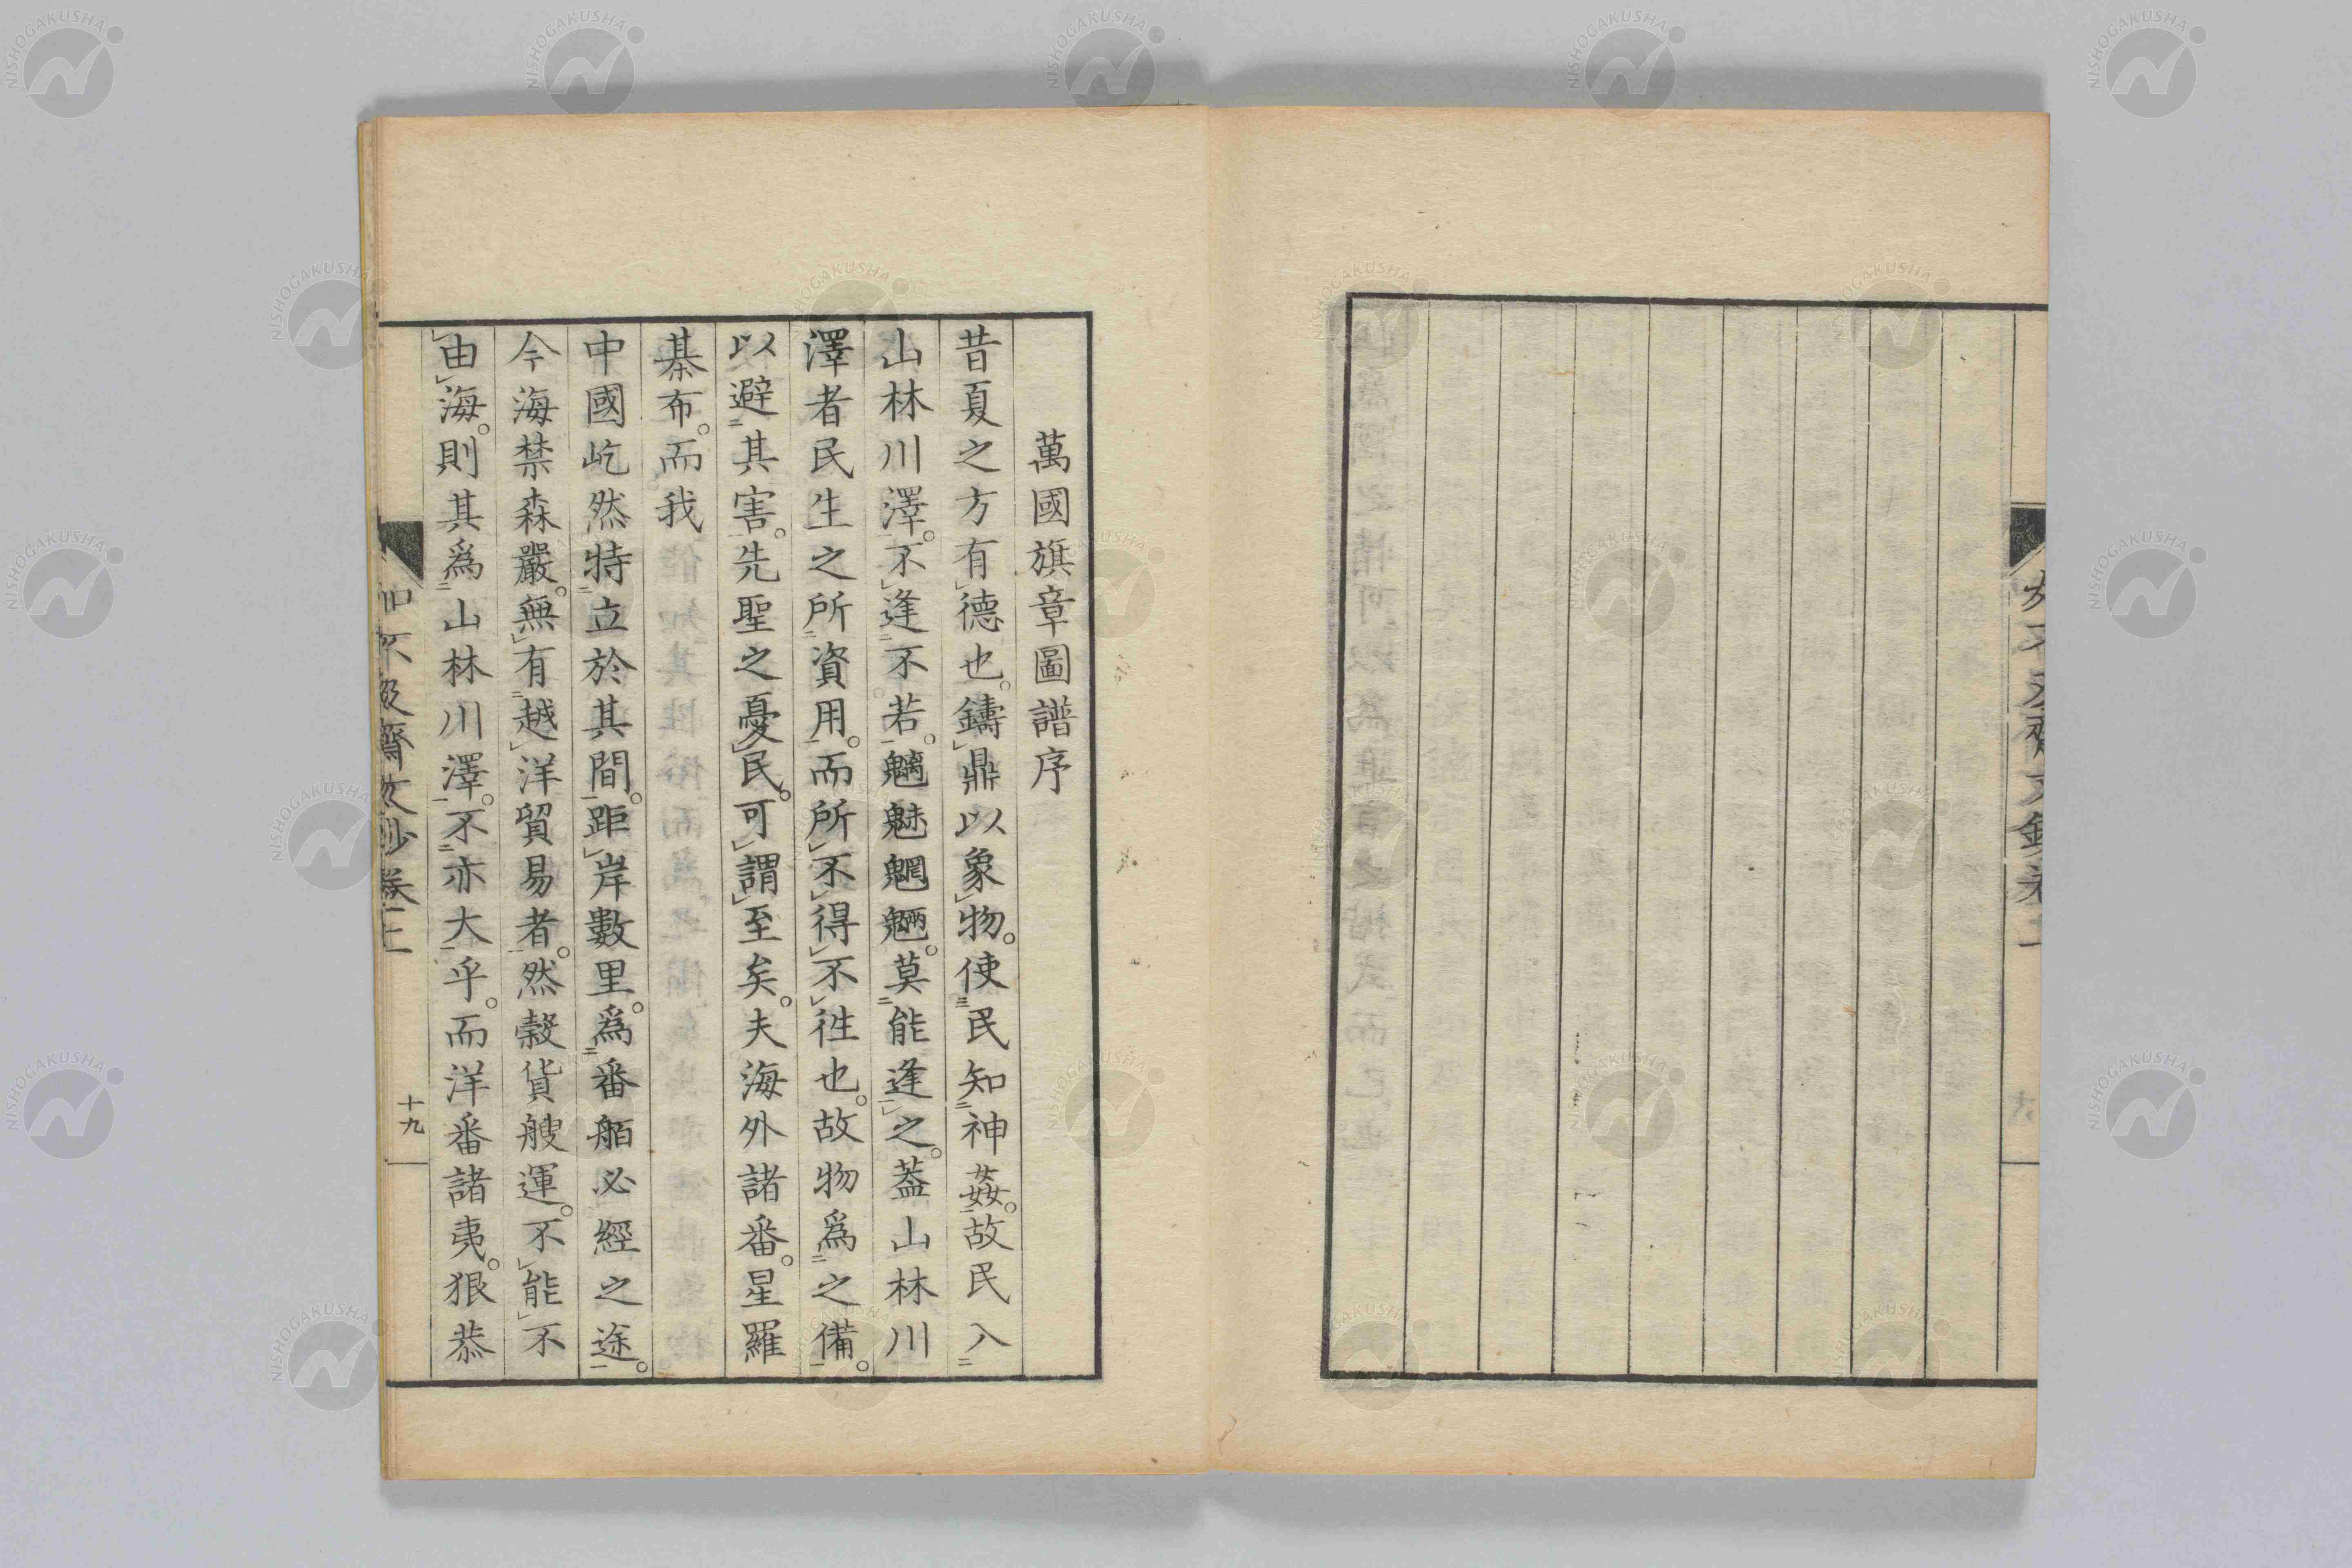 萬國旗章圖譜序
昔夏之方有德也。鑄鼎以象物。使民知神姦。故民入
山林川澤。不逢不若。魑魅魍魎。莫能逢之。蓋山林川
澤者民生之所資用。而所不得不徃也。故物爲之備。
以避其害。先聖之憂民。可謂至矣。夫海外諸番。星羅
棊布。而我
中國屹然特立於其間。距岸數里。爲番舶必經之途。
今海禁森嚴。無有越洋貿易者。然穀貨艘運。不能不
由海。則其爲山林川澤。不亦大乎。而洋番諸夷。狠恭
十九
NISHOGAKUSHA